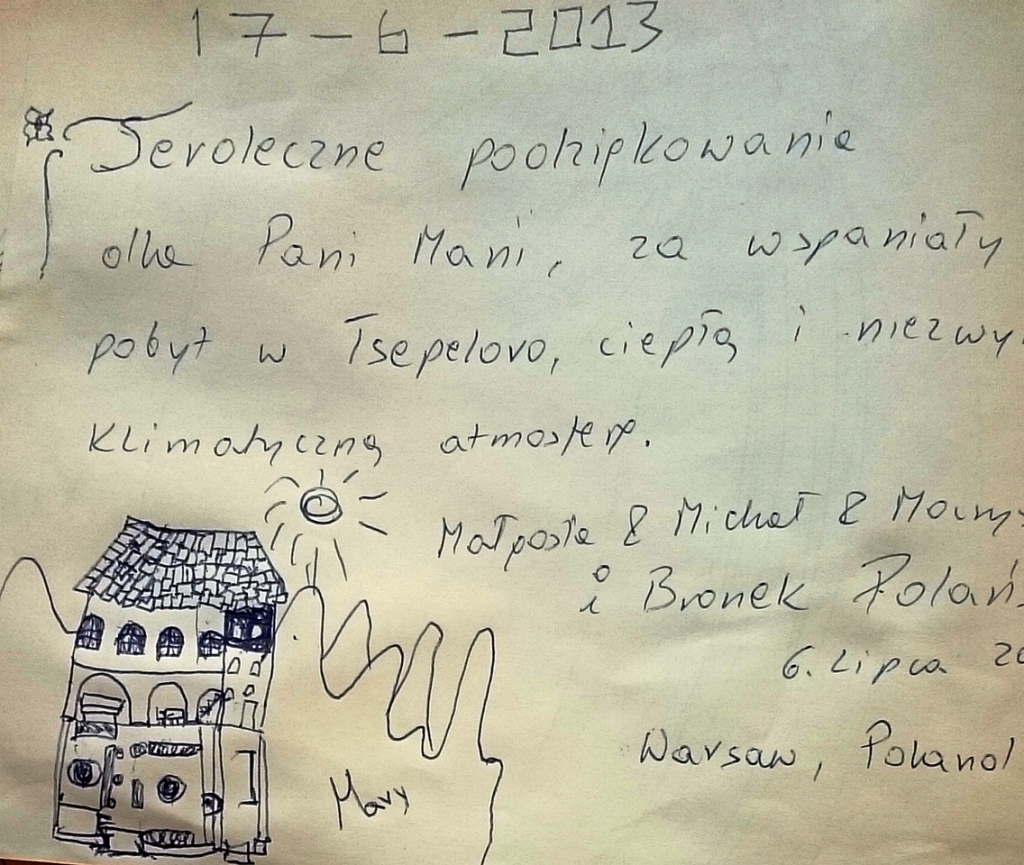 17-6-2013
Serdeczne podziękowanie
dla Pani Mani, za wspaniały
pobyt w Tsepelovo, ciepłą i niezwy
klimatyczną atmosferę.
Małgosia & Michał &
i Bronek Polań
6. Lipca 20
Warsaw, Poland
Mary